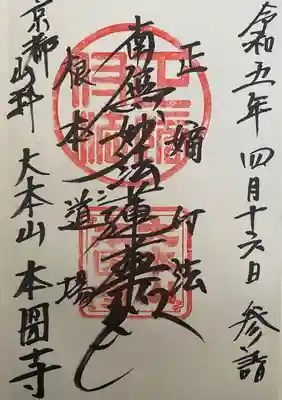 令和五年 四月十六日 参詣
正嫡付法
南無妙法蓮華経
根本道場
京都山科 大本山 本圀寺